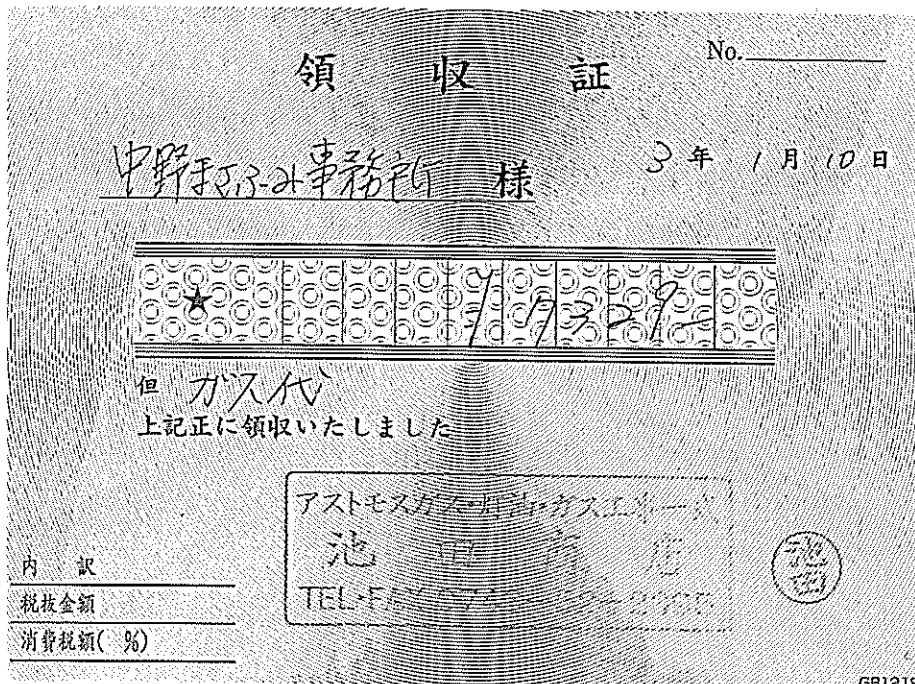 領収証
No.
中野まさふみ事務所 様
3年 1月 10日
★ ¥7329-
但 ガス代
上記正に領収いたしました
アストモスガス・灯油・ガス工事一式
池田商店
TEL・FAX
池田
内訳
税抜金額
消費税額( %)
GB1218